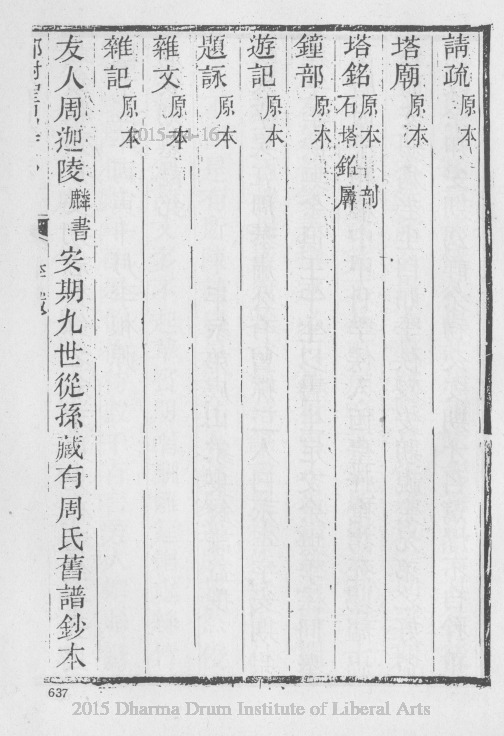 請疏原本
塔廟原本
塔銘原本剖石塔銘屬
鐘部原本
遊記原本
題詠原本
雜文原本
雜記原本
友人周迦陵麟書安期九世從孫藏有周氏舊譜鈔本
637
2015 Dharma Drum Institute of Liberal Arts